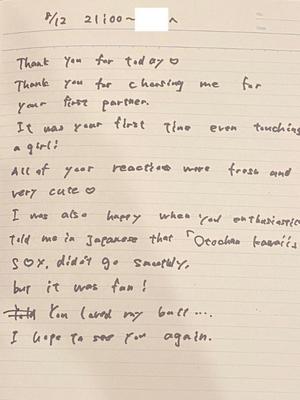 8/12 21:00~ へ
Thank you for today♡
Thank you for choosing me for
your first partner.
It was your first time even touching
a girl!
All of your reactions were fresh and
very cute♡
I was also happy when you enthusiastic
told me in Japanese that 「Otochan kawaii」
S♡x, didn't go smoothly,
but it was fun!
You loved my butt....
I hope to see you again.